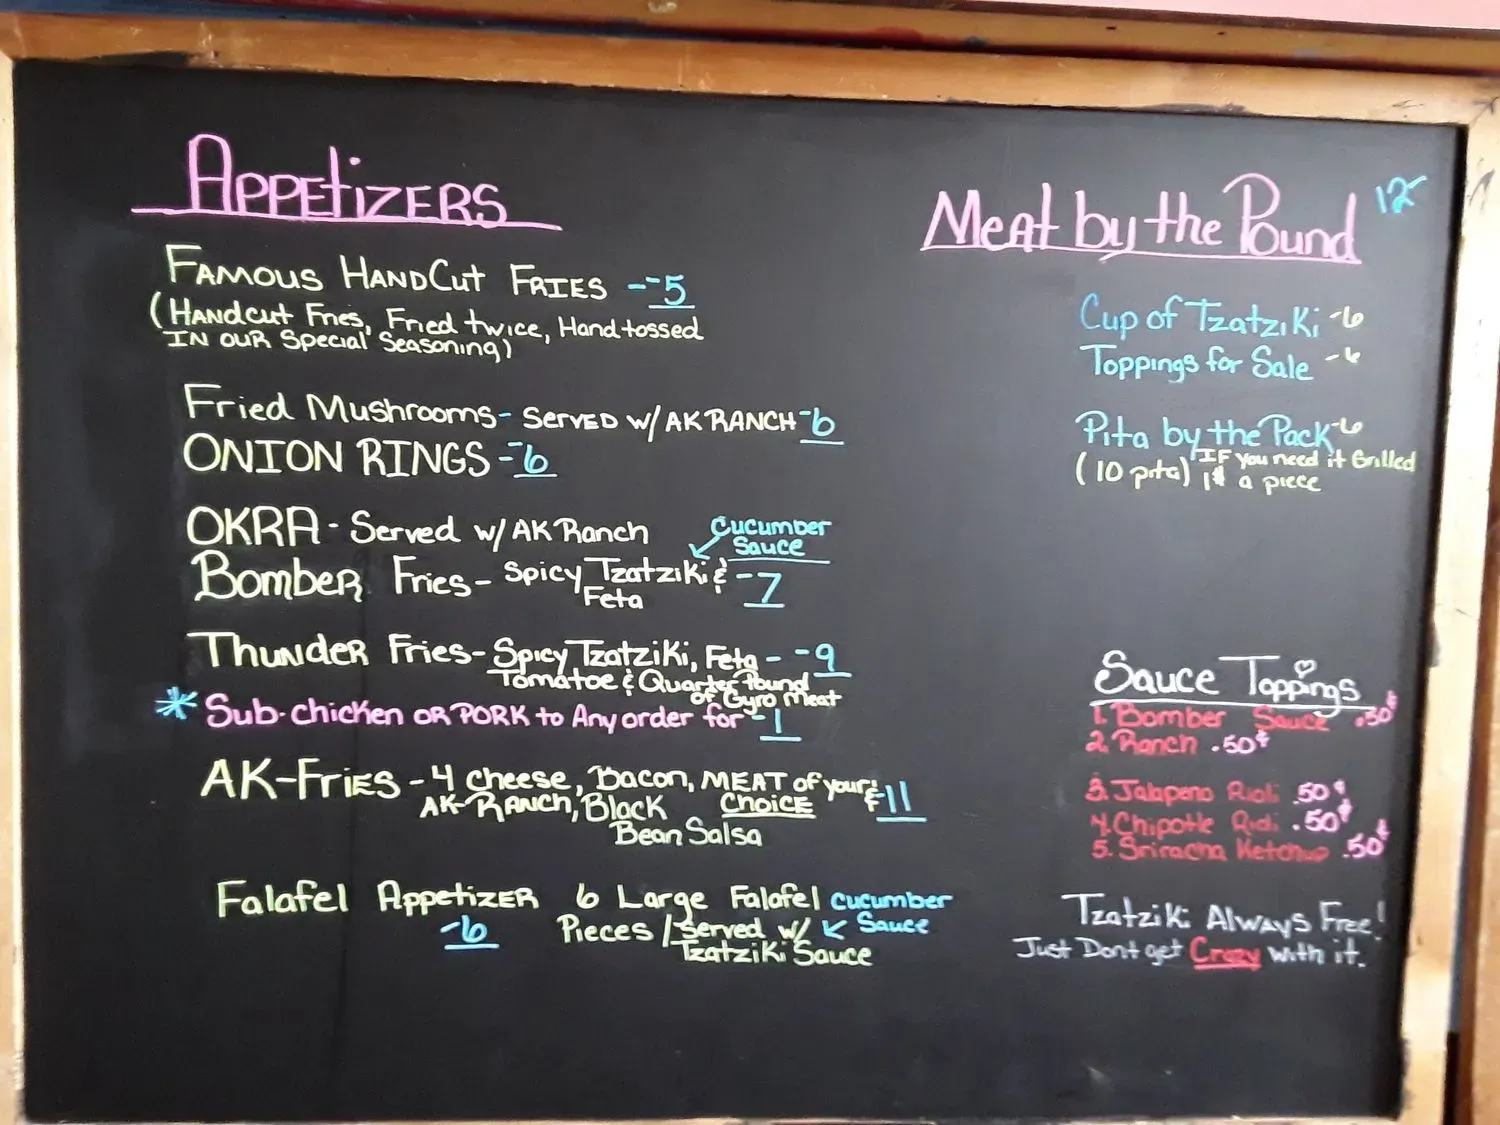 APPEtIZERS
FAMOUS HANDCut FRIES --5
(HANdcut Fries, Fried twice, Hand tossed
IN OUR Special Seasoning)
Fried Mushrooms- SERVED w/ AK RANCH -6
ONION RINGS -6
OKRA - Served w/ AK Ranch
Cucumber
Sauce
Bomber Fries - Spicy Tzatziki & -7
Feta
Thunder Fries- Spicy Tzatziki, Feta - -9
Tomatoe & Quarter Pound
of Gyro Meat
* Sub-chicken OR PORK to Any order for -1
AK-Fries - 4 cheese, Bacon, MEAT of your & -11
AK-RANCH, Black CHOICE
Bean Salsa
Falafel Appetizer 6 Large Falafel cucumber
-6 Pieces / Served w/ Sauce
Tzatziki Sauce
Meat by the Pound 12
Cup of Tzatziki -6
Toppings for Sale -6
Pita by the Pack -6
(10 pita) IF you need it Grilled
1$ a piece
Sauce Toppings
1. Bomber Sauce .50¢
2. Ranch .50¢
3. Jalapeno Rioli .50¢
4. Chipotle .50¢
5. Sriracha Ketchup .50¢
Tzatziki Always Free!
Just Dont get Crazy with it.